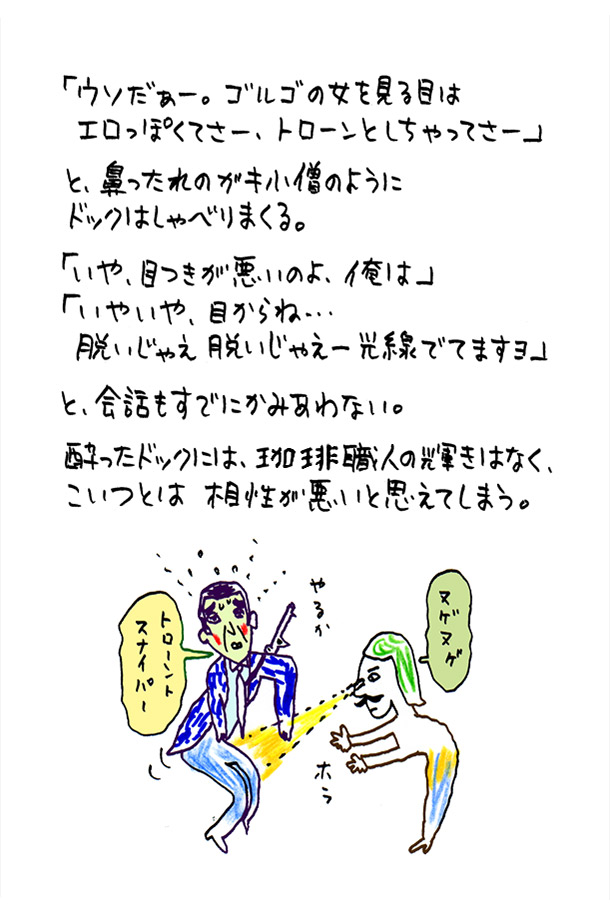 「ウソだぁー。ゴルゴの女を見る目は
エロっぽくてさー、トローンとしちゃってさー」
と、鼻ったれのガキ小僧のように
ドックはしゃべりまくる。
「いや、目つきが悪いのよ、俺は」
「いやいや、目からね…
脱いじゃえ 脱いじゃえー光線でてますヨ」
と、会話もすでにかみあわない。
酔ったドックには、珈琲職人の輝きはなく、
こいつとは 相性が悪いと思えてしまう。
やるか
トローント
スナイパー
ヌゲヌゲ
ホラ